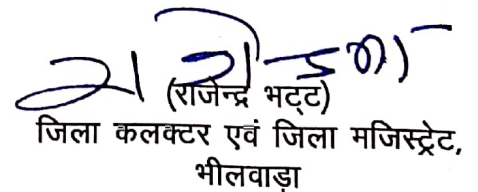 (राजेन्द्र भट्ट)
जिला कलक्टर एवं जिला मजिस्ट्रेट,
भीलवाडा